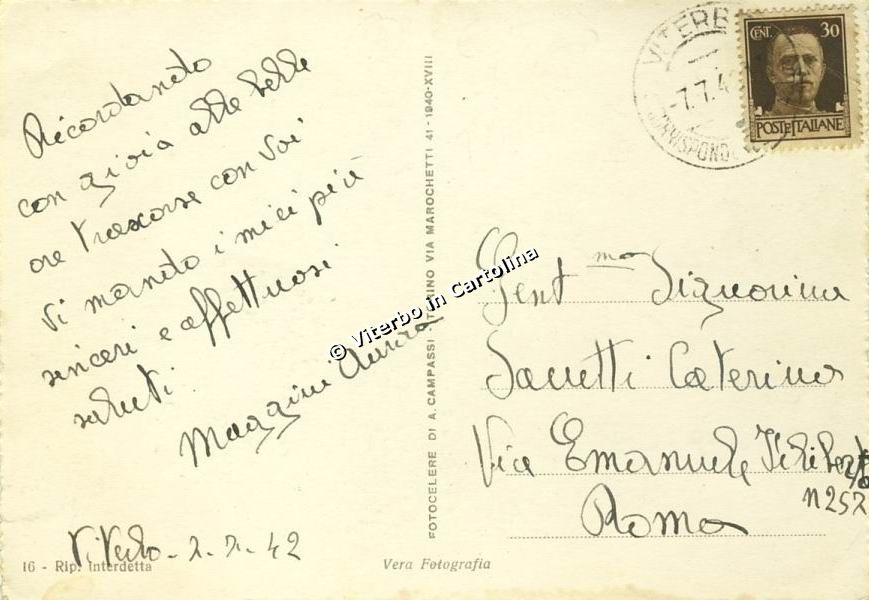 Ricordando
con gioia alle belle
ore trascorse con voi
vi mando i miei più
sinceri e affettuosi
saluti
Maggini
Viterbo - 7-7-42
16 - Rip. Interdetta
Vera Fotografia
FOTOCELERE DI A. CAMPASSI TORINO VIA MAROCHETTI 41 - 1940-XVIII
© Viterbo in Cartolina
VITERB
-7.7.4
CENT. 30
POSTE ITALIANE
Gent.ma Signorina
Caterina
Via Emanuele Filiberto
n 257
Roma